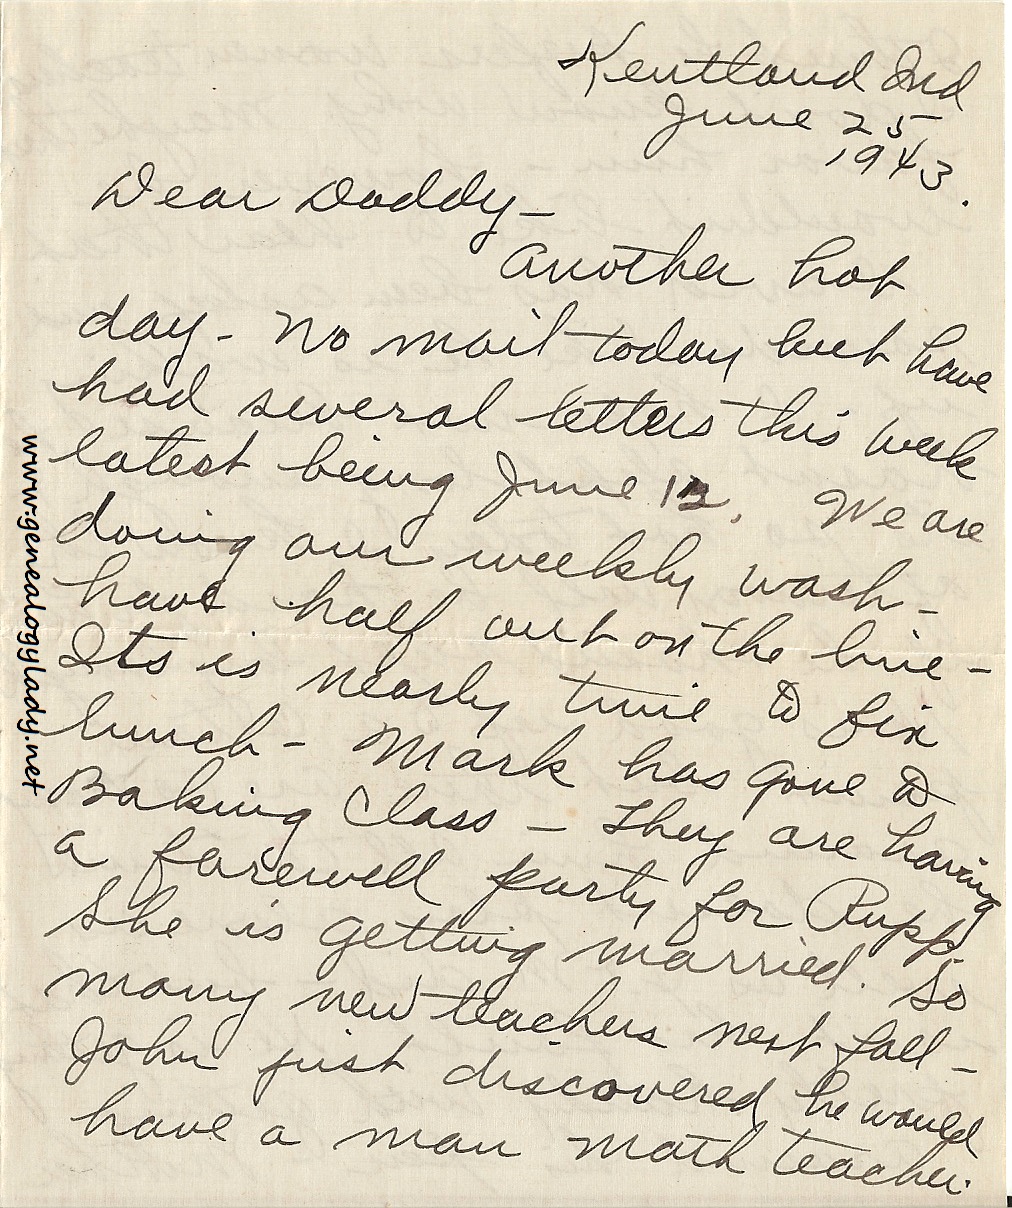 Kentland Ind
June 25,
1943.
Dear Daddy-
Another hot
day - No mail today but have
had several letters this week
latest being June 12. We are
doing our weekly wash -
have half out on the line -
Its is nearly time to fix
lunch - Mark has gone to
Baking Class - They are having
a farewell party for Rupp.
She is getting married. So
many new teachers next fall -
John just discovered he would
have a man math teacher.
www.genealogylady.net